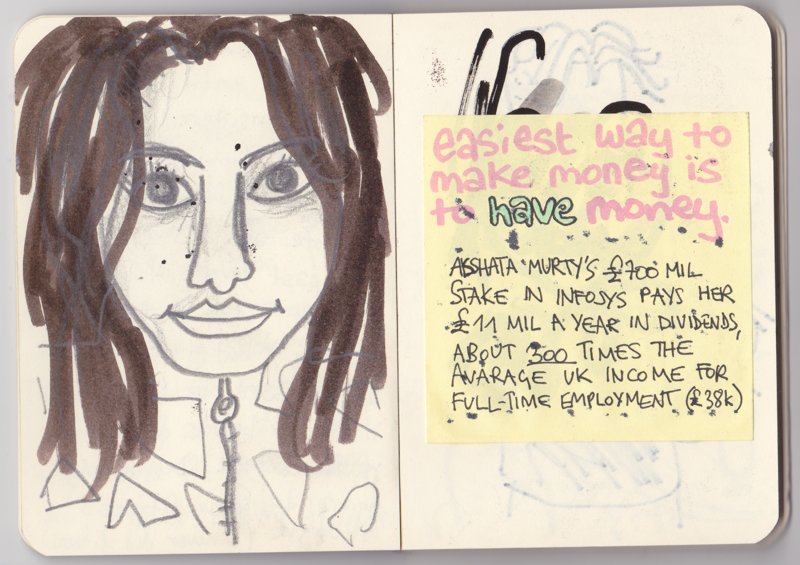 easiest way to
make money is
to have money.
AKSHATA MURTY'S £700 MIL
STAKE IN INFOSYS PAYS HER
£11 MIL A YEAR IN DIVIDENDS,
ABOUT 300 TIMES THE
AVARAGE UK INCOME FOR
FULL-TIME EMPLOYMENT (£38K)